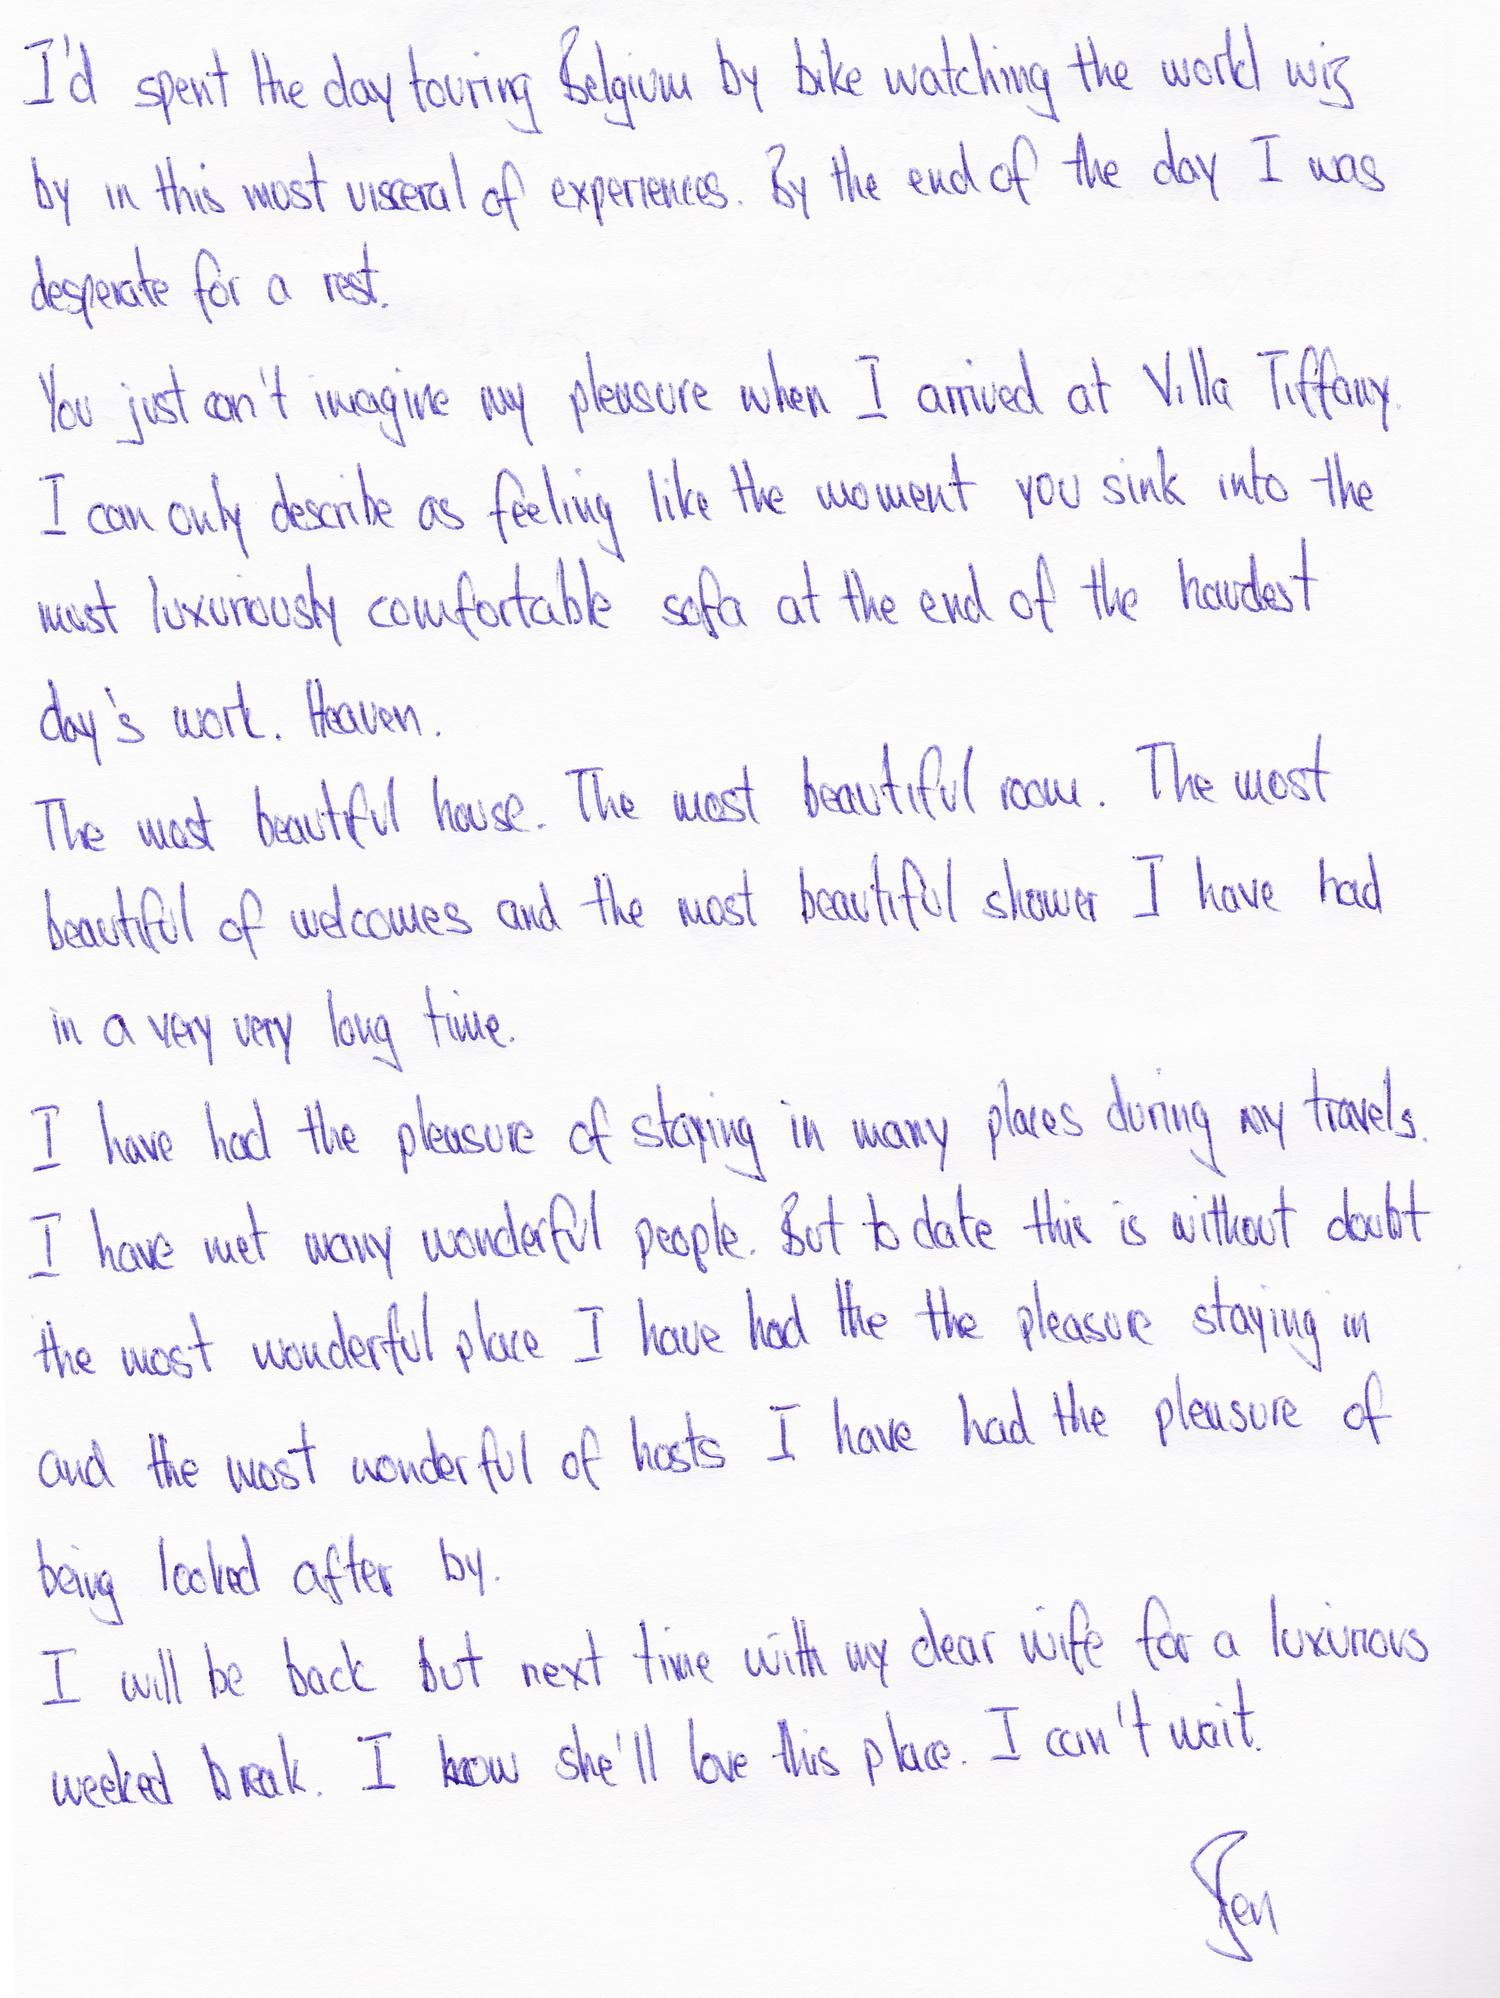 I'd spent the day touring Belgium by bike watching the world wiz
by in this most visceral of experiences. By the end of the day I was
desperate for a rest.
You just can't imagine my pleasure when I arrived at Villa Tiffany.
I can only describe as feeling like the moment you sink into the
most luxuriously comfortable sofa at the end of the hardest
day's work. Heaven.
The most beautiful house. The most beautiful room. The most
beautiful of welcomes and the most beautiful shower I have had
in a very very long time.
I have had the pleasure of staying in many places during my travels.
I have met many wonderful people. But to date this is without doubt
the most wonderful place I have had the the pleasure staying in
and the most wonderful of hosts I have had the pleasure of
being looked after by.
I will be back but next time with my dear wife for a luxurious
weeked break. I know she'll love this place. I can't wait.